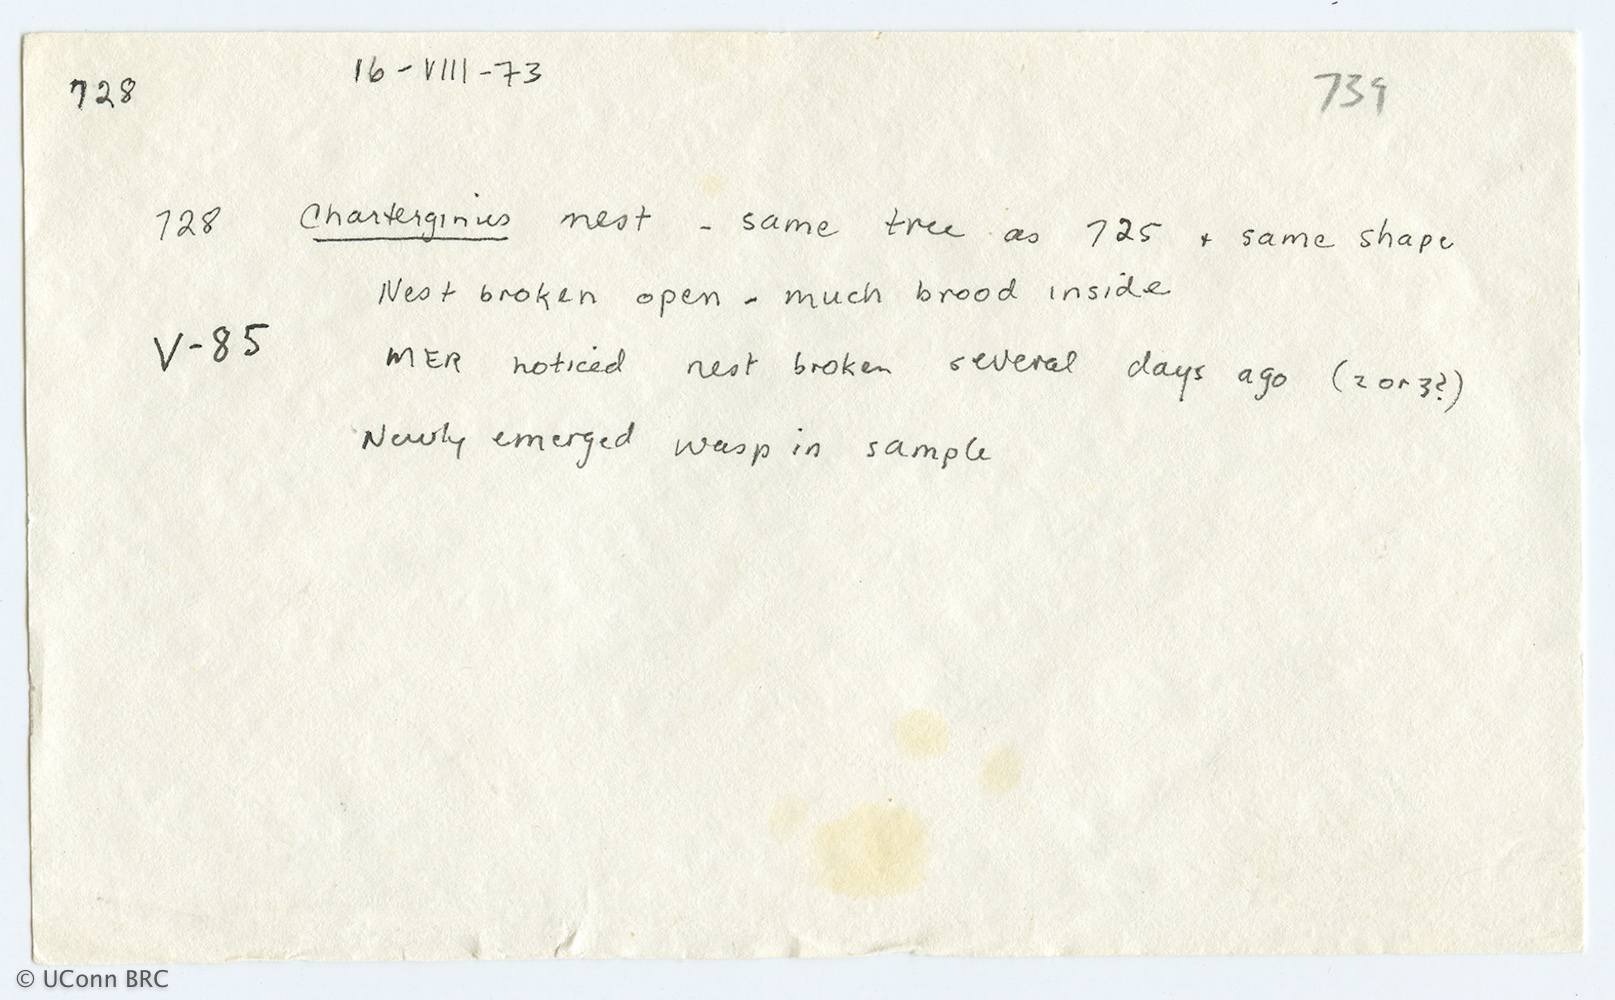 728 16-VIII-73 739
728 Charterginus nest - same tree as 725 + same shape
Nest broken open - much brood inside
V-85 MER noticed nest broken several days ago (2 or 3?)
Newly emerged wasp in sample
© UConn BRC